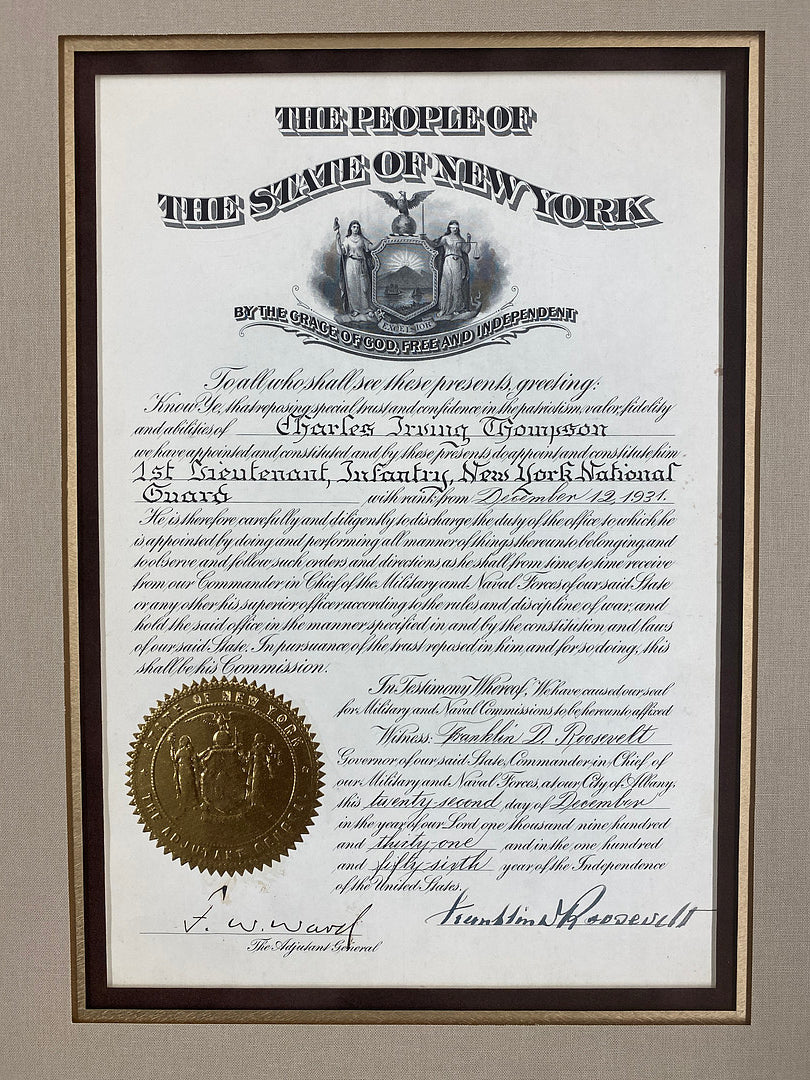 THE PEOPLE OF
THE STATE OF NEW YORK
EXCELSIOR
BY THE GRACE OF GOD, FREE AND INDEPENDENT
To all who shall see these presents, greeting:
Know Ye, that reposing special trust and confidence in the patriotism, valor, fidelity
and abilities of Charles Irving Thompson
we have appointed and constituted and by these presents do appoint and constitute him
1st Lieutenant, Infantry, New York National
Guard with rank from December 12, 1931.
He is therefore carefully and diligently to discharge the duty of the office to which he
is appointed by doing and performing all manner of things thereunto belonging, and
to observe and follow such orders and directions as he shall from time to time receive
from our Commander in Chief of the Military and Naval Forces of our said State
or any other his superior officer according to the rules and discipline of war, and
hold the said office in the manner specified in and by the constitution and laws
of our said State. In pursuance of the trust reposed in him and for so doing, this
shall be his Commission.
In Testimony Whereof, We have caused our seal
for Military and Naval Commissions to be hereunto affixed
Witness: Franklin D. Roosevelt
Governor of our said State, Commander in Chief of
our Military and Naval Forces, at our City of Albany,
this twenty second day of December
in the year of our Lord one thousand nine hundred
and thirty-one and in the one hundred
and fifty-sixth year of the Independence
of the United States.
STATE OF NEW YORK
THE ADJUTANT GENERAL
F. W. Ward
The Adjutant General
Franklin D Roosevelt